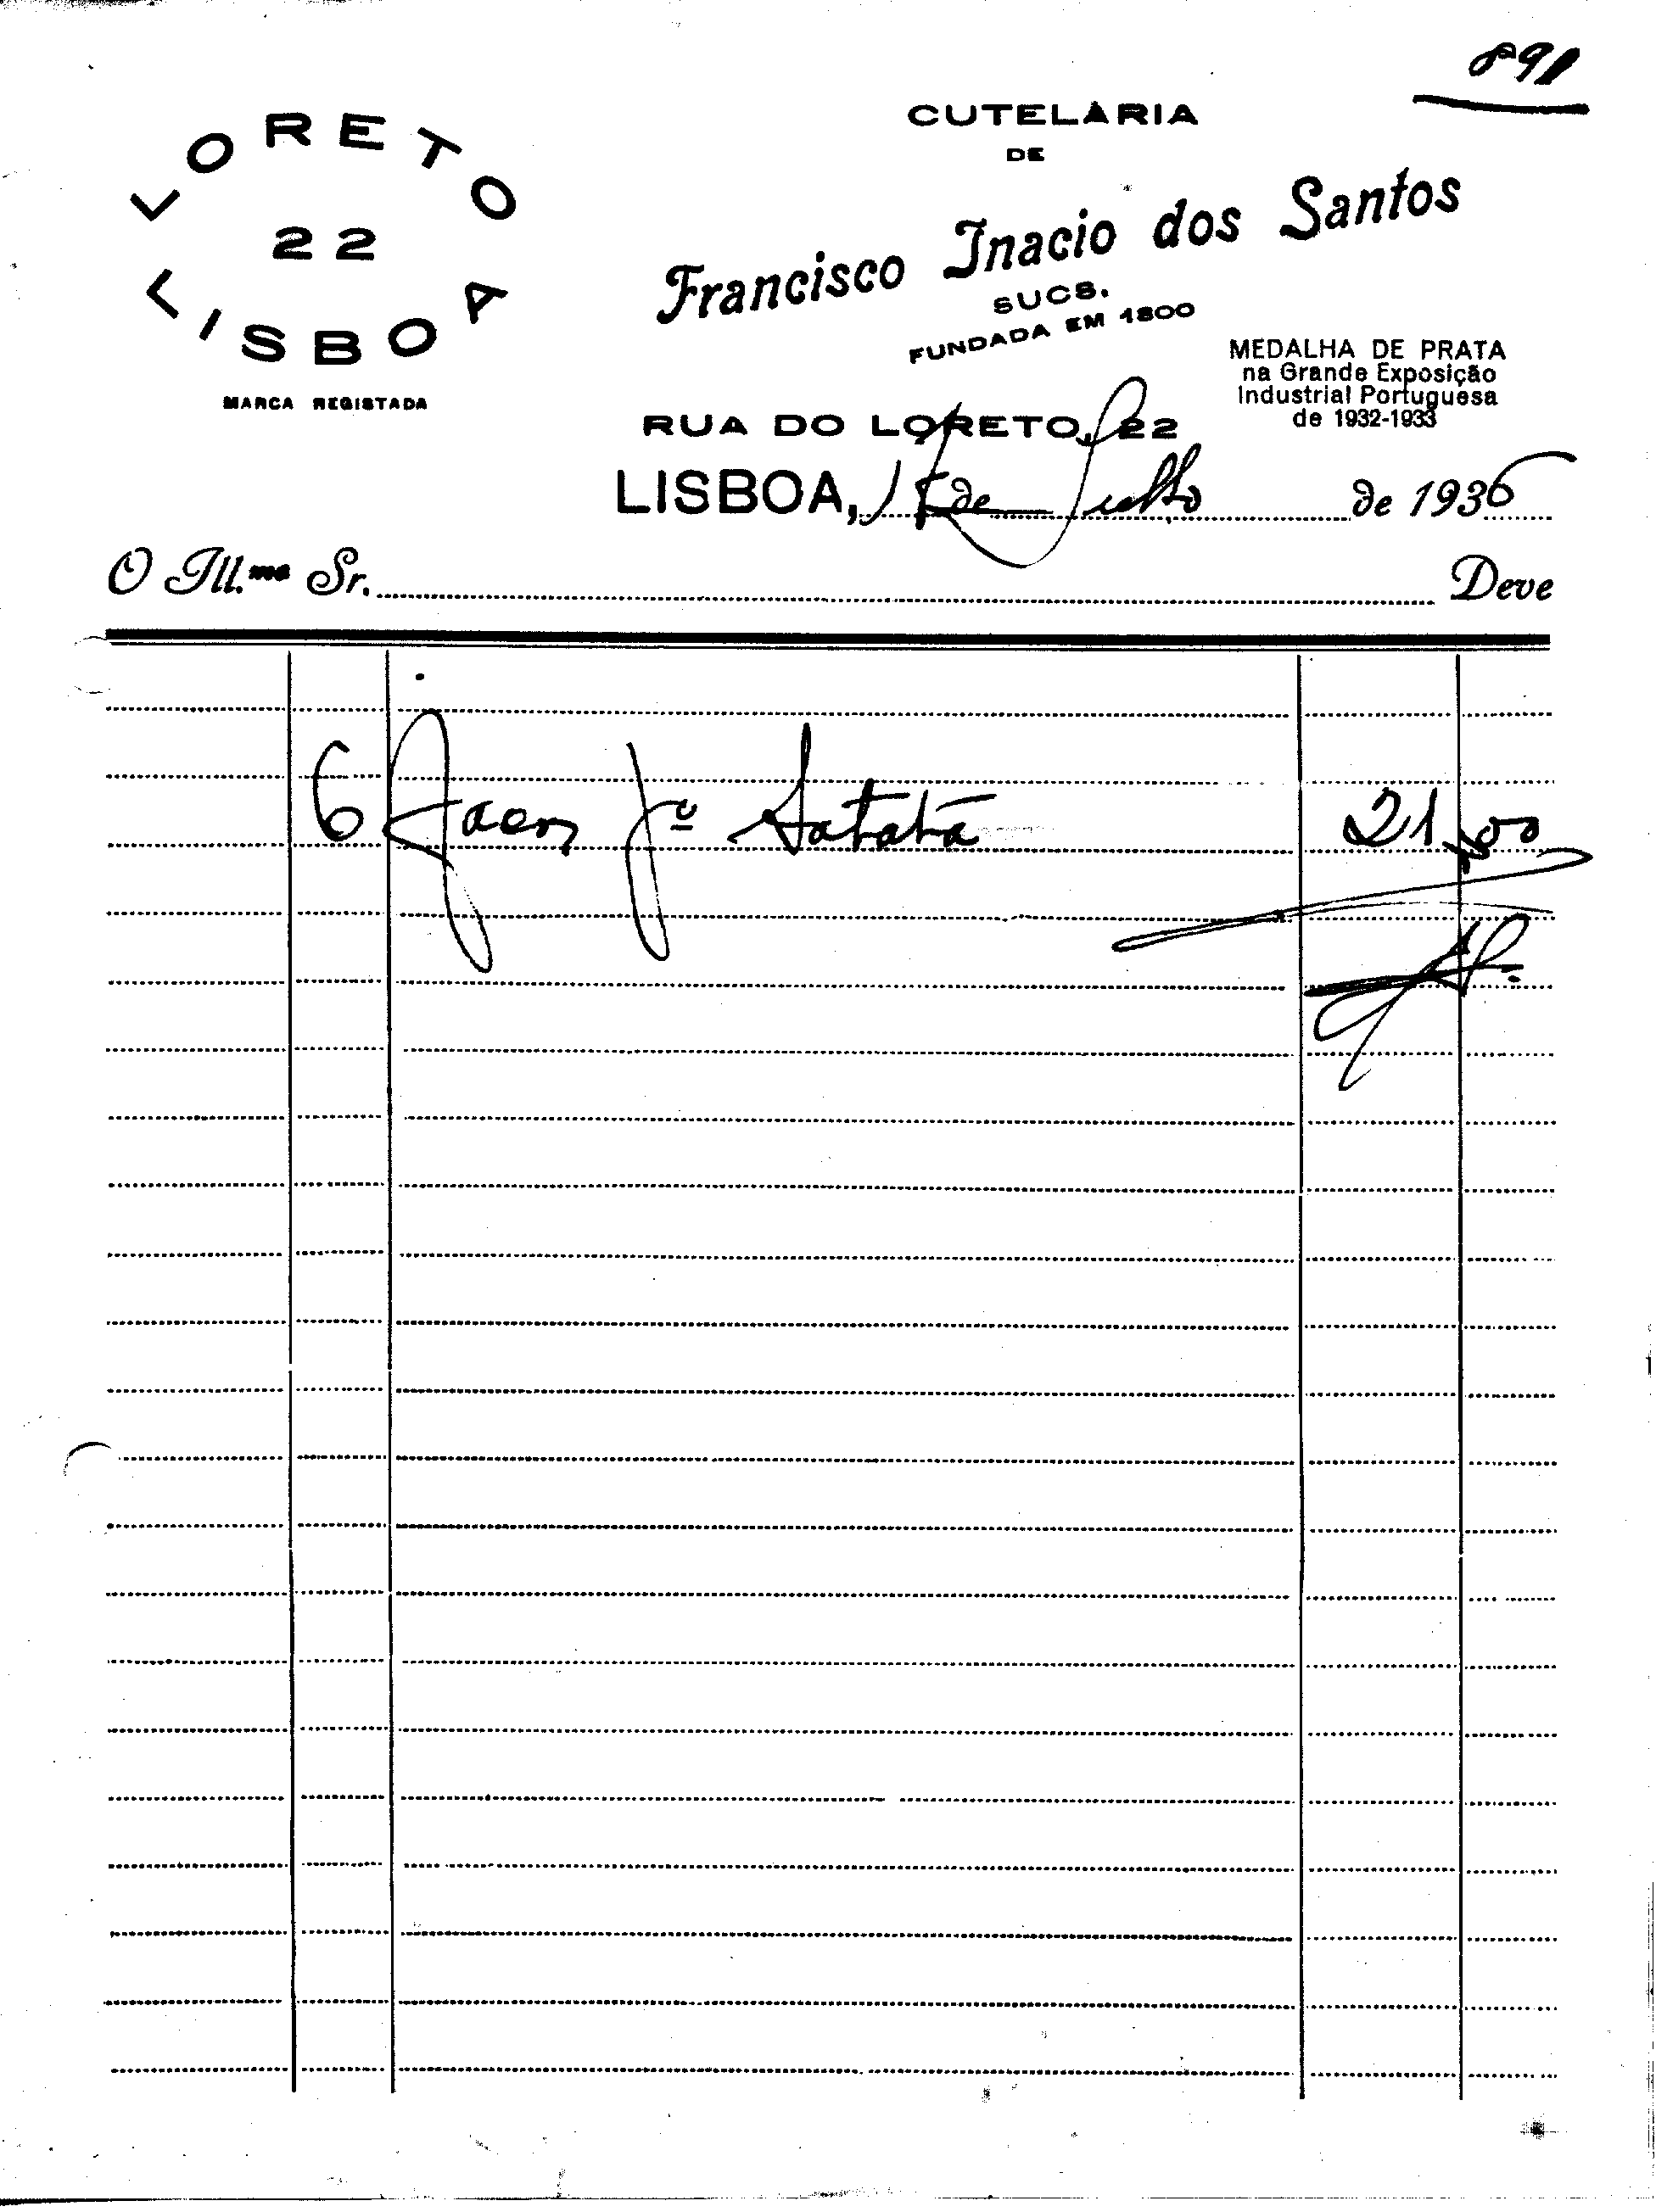 891
LORETO
22
LISBOA
MARCA REGISTADA
CUTELARIA
DE
Francisco Inacio dos Santos
SUCS.
FUNDADA EM 1800
MEDALHA DE PRATA
na Grande Exposição
Industrial Portuguesa
de 1932-1933
RUA DO LORETO, 22
LISBOA, 15 de Julho de 1936
O Ill.mo Sr. Deve
6 21,00